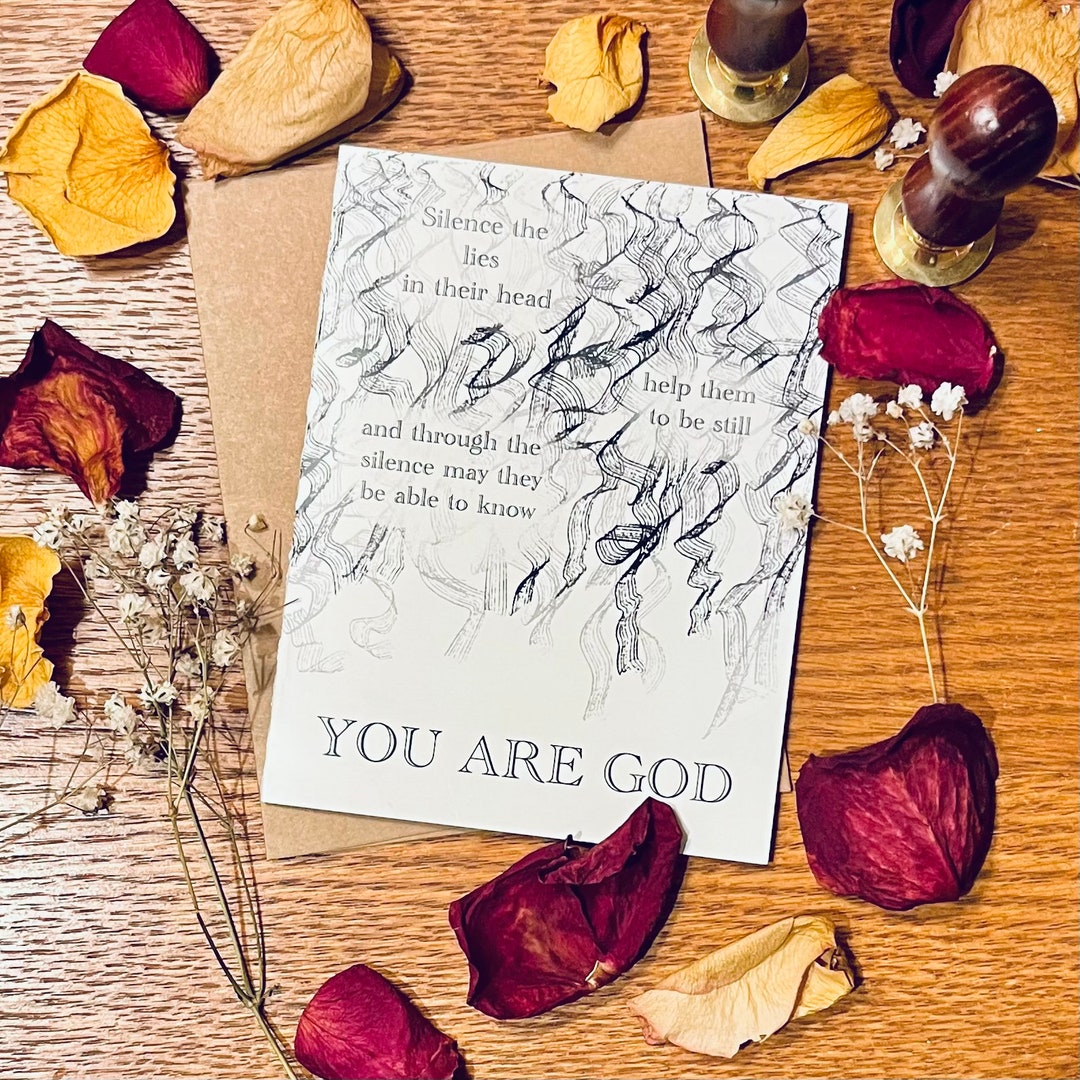 Silence the
lies
in their head
help them
to be still
and through the
silence may they
be able to know
YOU ARE GOD